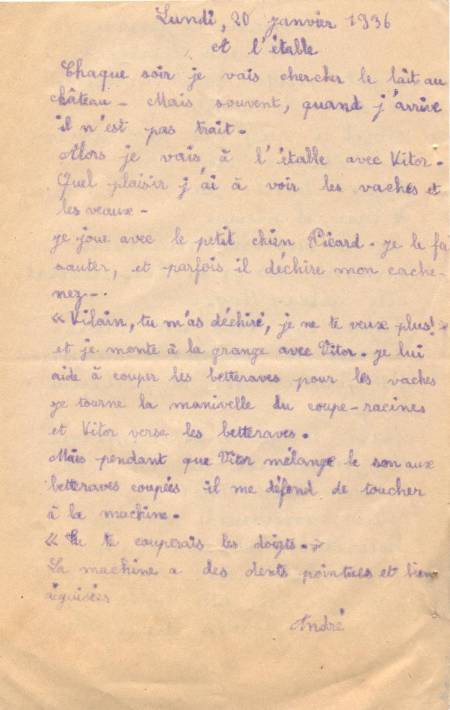 Lundi, 20 janvier 1936
et l'étable
Chaque soir je vais chercher le lait au
château - Mais souvent, quand j'arrive
il n'est pas trait.
Alors je vais à l'étable avec Vitor.
Quel plaisir j'ai à voir les vaches et
les veaux.
je joue avec le petit chien Picard. je le fai
sauter, et parfois il déchire mon cache-
nez...
« Vilain, tu m'as déchiré, je ne te veux plus! »
et je monte à la grange avec Vitor. je lui
aide à couper les betteraves pour les vaches
je tourne la manivelle du coupe-racines
et Vitor verse les betteraves.
Mais pendant que Vitor mélange le son aux
betteraves coupées il me défend de toucher
à la machine.
« Tu te couperais les doigts. »
La machine a des dents pointues et bien
aiguisées
André